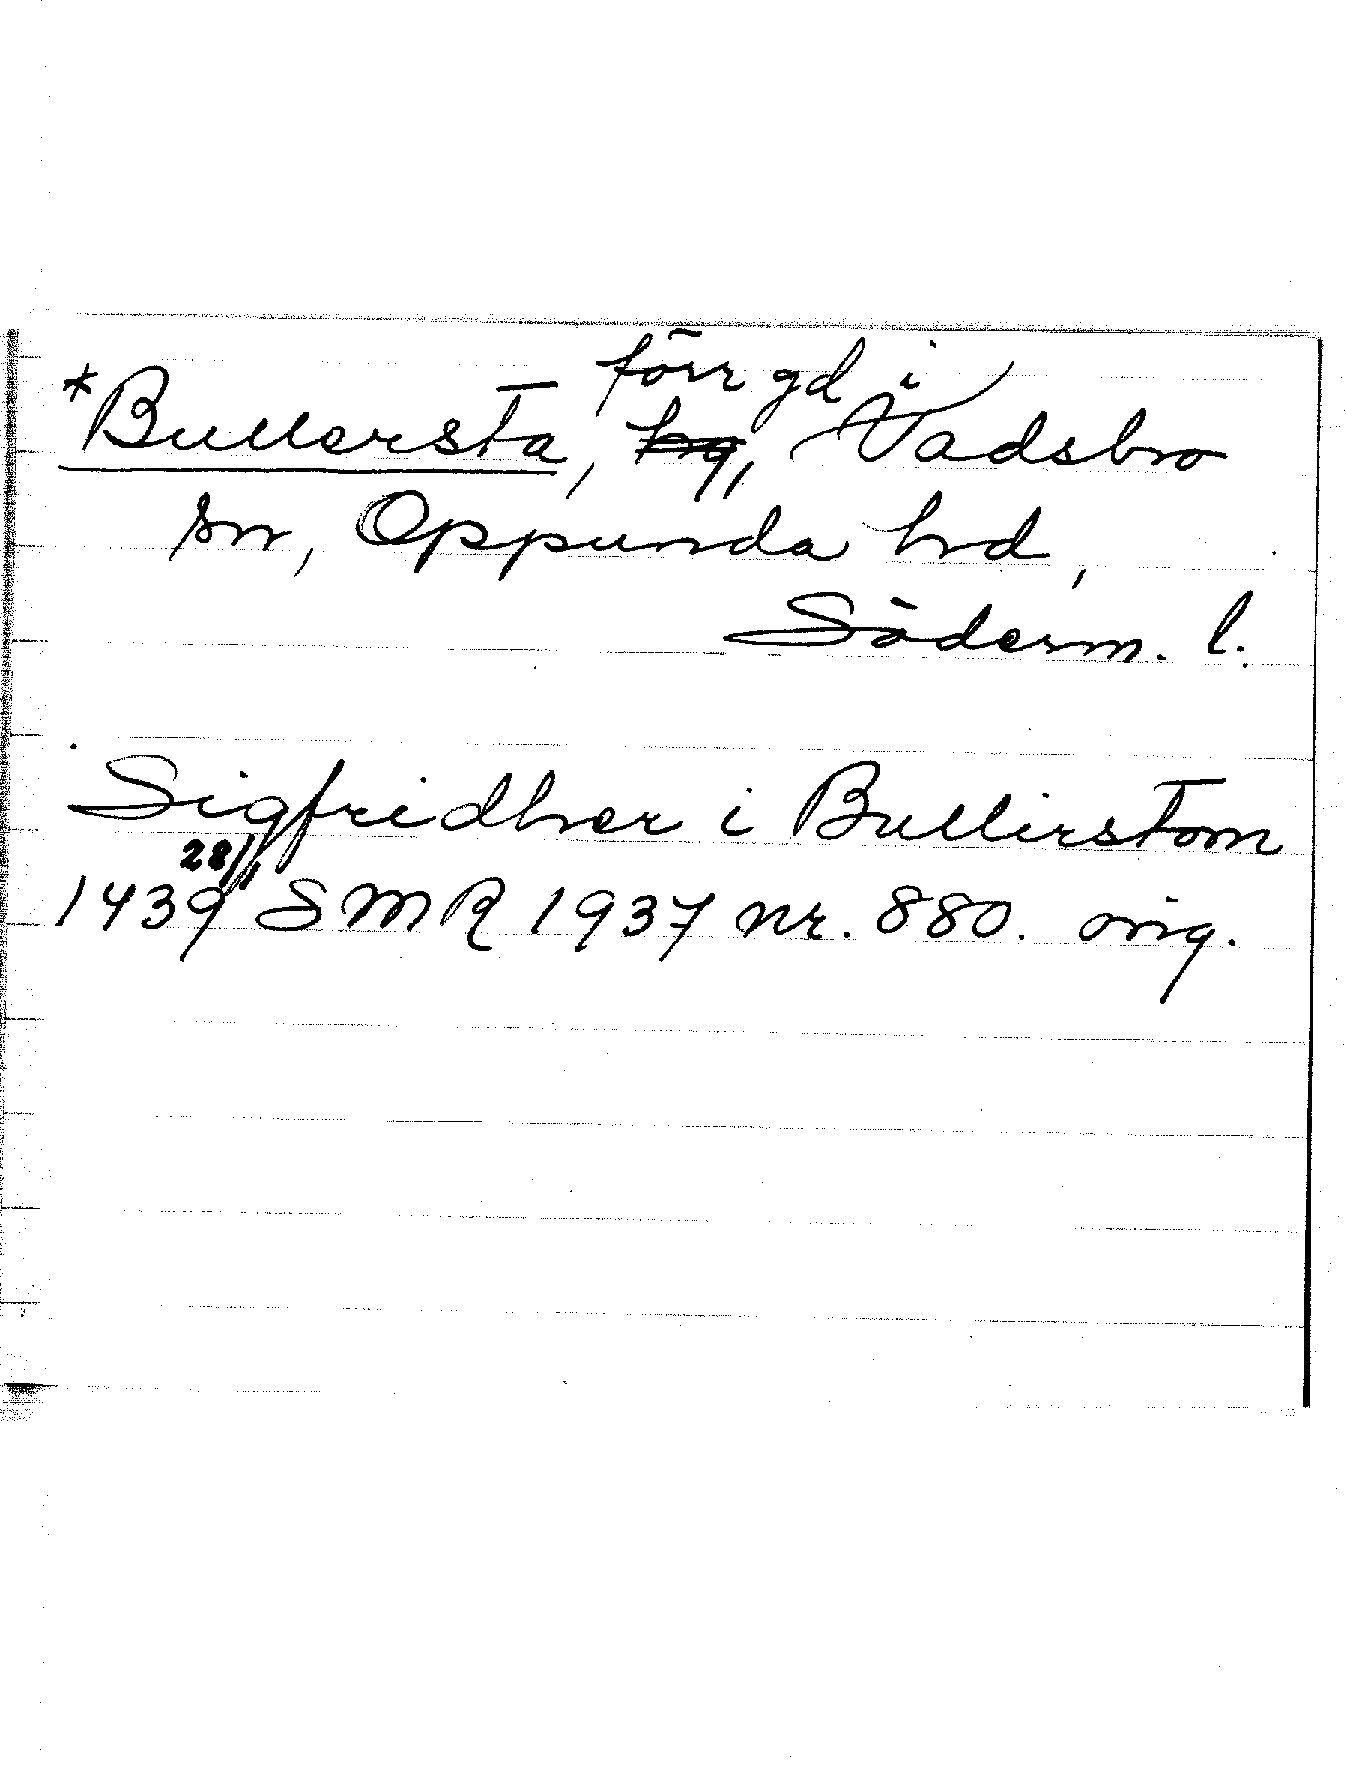 förr gd i
*Bullersta, hg, Vadsbro
sn, Oppunda hd,
Söderm. l.
Sigfridh er i Bullirstom
28/1
1439 SMR 1937 nr. 880. orig.